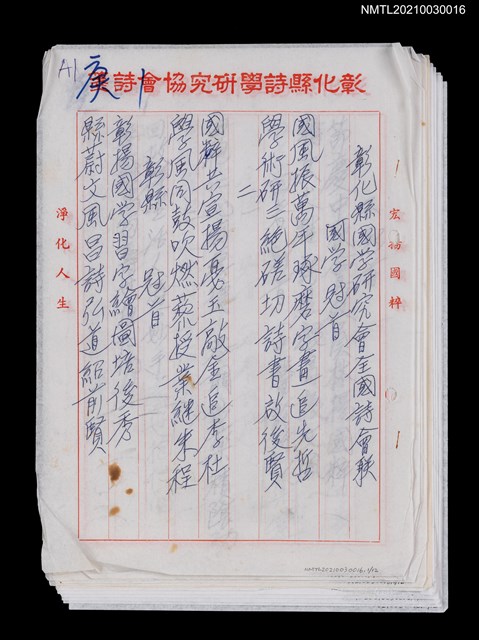 NMTL20210030016
A1
庚
彰化縣詩學研究協會詩箋
宏揚國粹
彰化縣國学研究會全國詩會联
国学冠首
國風振萬年琢磨字畫追先哲
學術研三絕磋切詩書啟後賢
二
國粹共宣揚戞玉敲金追李杜
學風同鼓吹燃藜授業継朱程
彰縣冠首
彰揚國学習字繪圖培後秀
縣蔚文風昌詩弘道紹前賢
淨化人生
NMTL20210030016-1/12